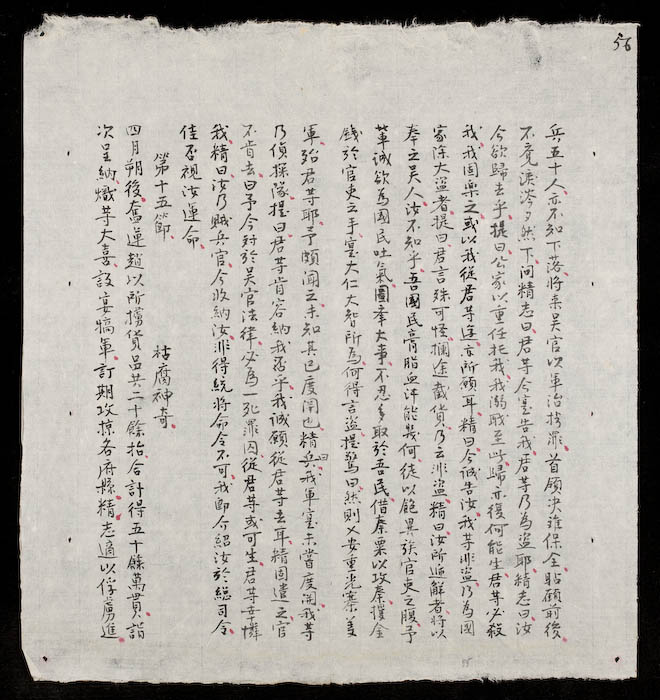 56
兵五十人亦不知下落將来吴官以軍治按罪首領决難保全貼顧前後
不竟淚泠夕然下问精志曰君等今寔告我君等乃為盜耶精志曰汝
今欲歸去乎提曰公家以重任托我我溺職至此歸亦復何能生君等必殺
我我固樂之或以我從君等逵亦所願耳精曰今诚告汝我等非盜乃為國
家除大盜者提曰君言殊可怪攔途截貨乃云非盜精曰汝所逅解者将以
奉之吴人汝不知乎吾國民膏脂血汗能幾何徒以飽異族官吏之腹予
輩诚欲為國民吐氣圖牽大事不忍多取於吾民借秦粟以攻秦攫金
錢於官吏之手寔大仁大智所為何得言盜提驚曰然則乂安重光寨姜
軍殆君等耶予頗闻之未知其已度関也精曰兵我軍寔未當度関我等
乃偵探隊提曰君等肯容納我否乎我诚願從君等去耳精固遣之官
不肯去曰予今对於吴官法律必為一死罪囚從君等或可生君等幸憐
我精曰汝乃賊兵官今收納汝非得統将命令不可我即今紹汝於總司令
佳否視汝運命
第十五節 祛腐神奇
四月朔後奮運趙以所擄貨品共二十餘抬合計得五十餘萬貫詣
次呈納熾等大喜設宴犒軍訂期攻掠各府縣精志適以俘虜進